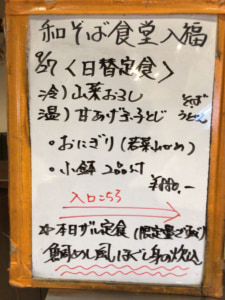 和そば食堂入福
9/7〈日替定食〉
冷)山菜おろし そば
温)甘あげ玉子とじ うどん
・おにぎり(若菜わかめ)
・小鉢2品付
¥880.-
入口こちら
本日ザル定食(限定量ございます)
鯛めし風ほぐし身の炊込